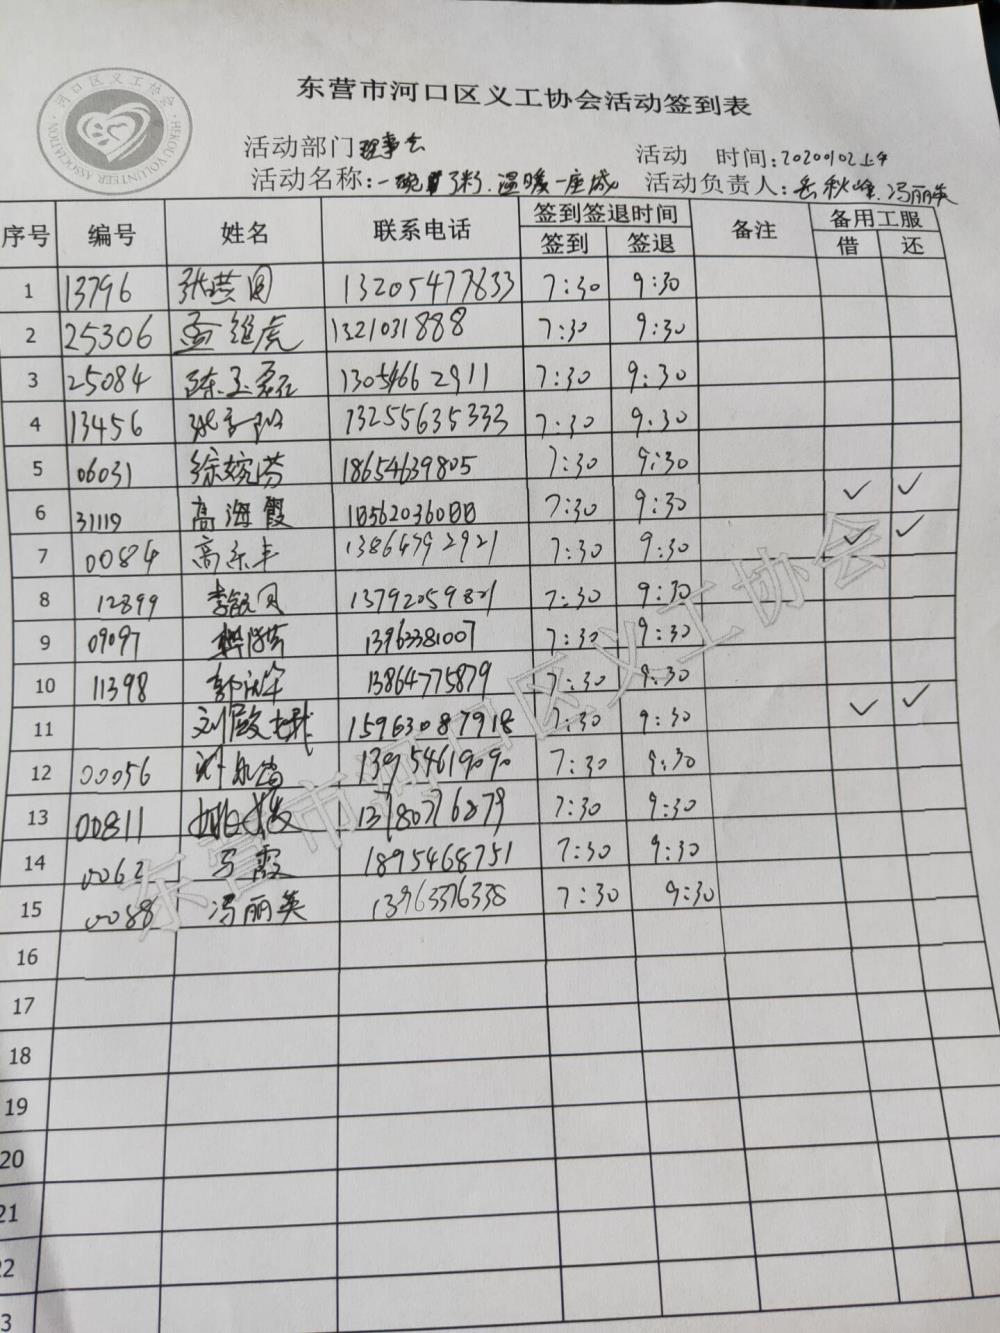 东营市河口区义工协会活动签到表
河口区义工协会
HEKOU VOLUNTEER ASSOCIATION
活动部门 理事会 活动 时间:20200102上午
活动名称:一碗粥.温暖一座城 活动负责人:岳秋峰.冯丽英
序号 编号 姓名 联系电话 签到签退时间 备注 备用工服
签到 签退 借 还
1 13796 13205477833 7:30 9:30
2 25306 孟维虎 1321031888 7:30 9:30
3 25084 陈玉磊 1305466 2911 7:30 9:30
4 13456 13255635333 7:30 9:30
5 06031 徐婉芬 18654639805 7:30 9:30
6 31119 高海霞 18562036088 7:30 9:30 ✓ ✓
7 00084 高东丰 13864792921 7:30 9:30 ✓ ✓
8 12899 13792059801 7:30 9:30
9 09097 13963381007 7:30 9:30
10 11398 13864775879 7:30 9:30
11 刘殿 15963087918 7:30 9:30 ✓ ✓
12 00056 13954619090 7:30 9:30
13 00811 13780776879 7:30 9:30
14 0062 马霞 1895468751 7:30 9:30
15 0088 冯丽英 13963376338 7:30 9:30
16
17
18
19
20
21
22
3
东营市河口区义工协会